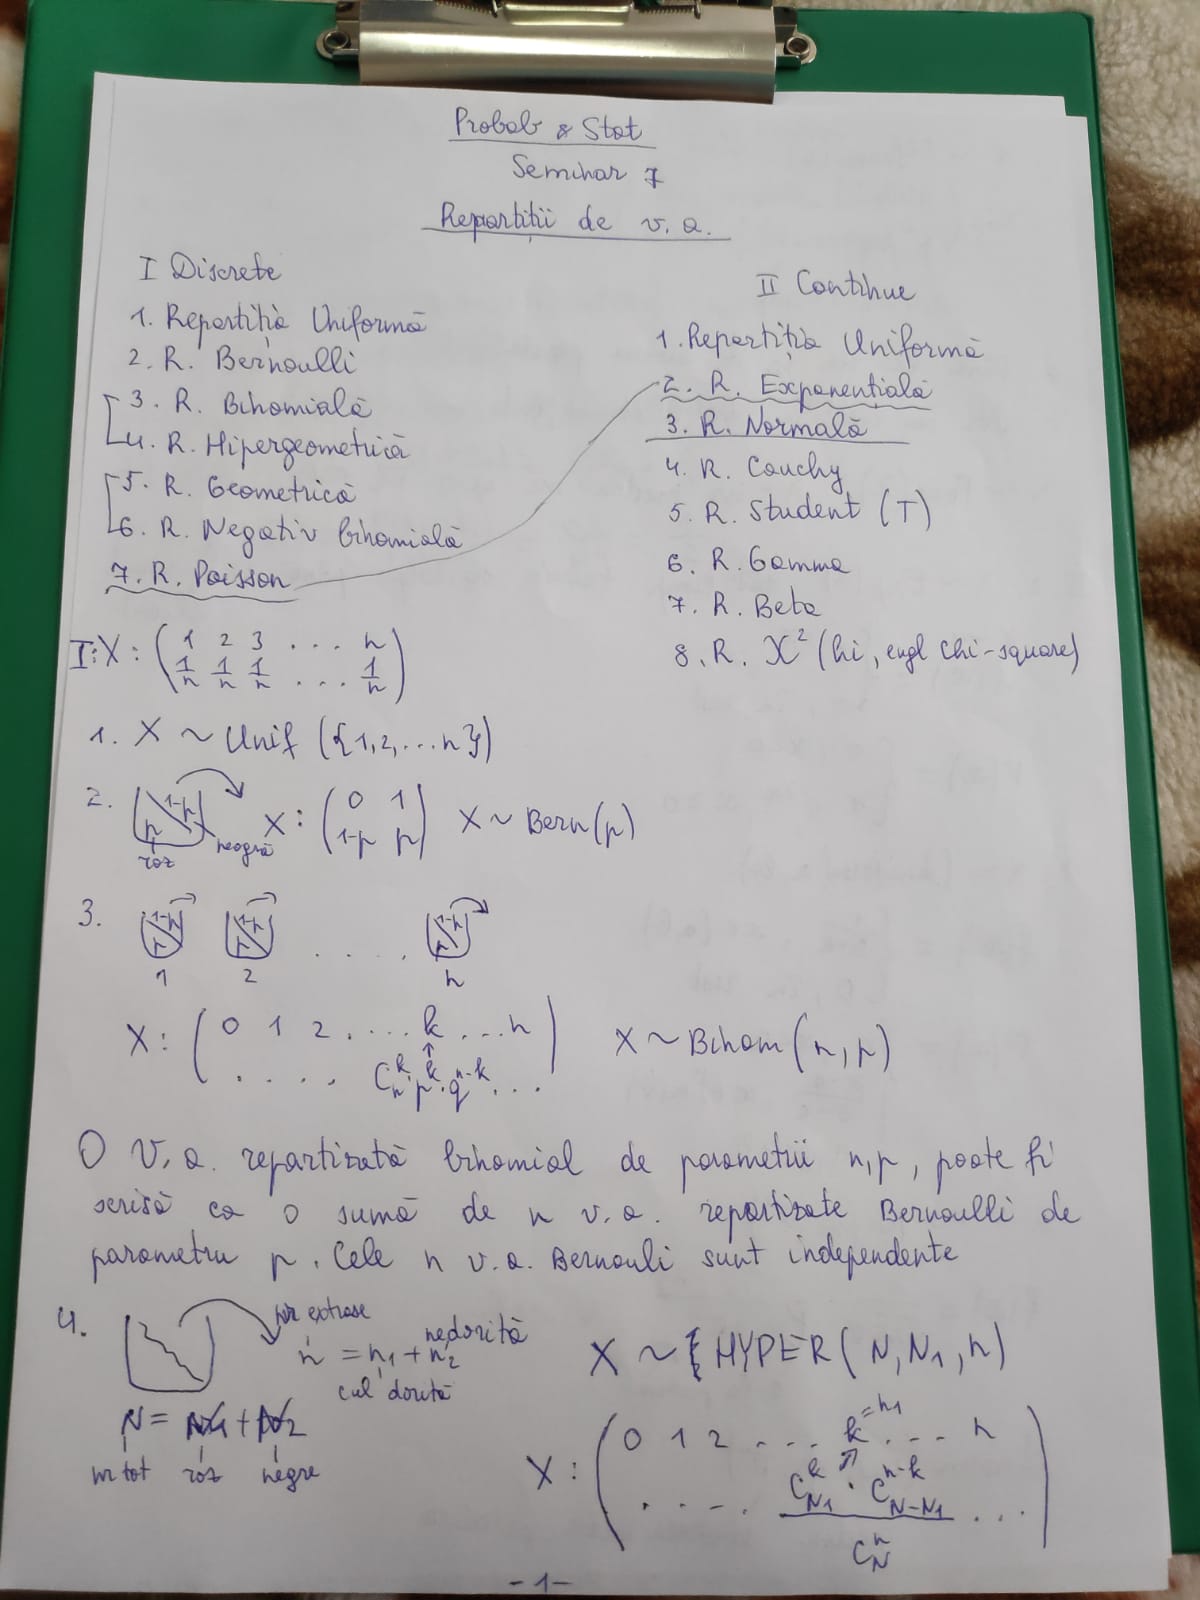 Probab & Stat
Seminar 7
Repartiții de v.a.
I Discrete
1. Repartiția Uniformă
2. R. Bernoulli
3. R. Binomială
4. R. Hipergeometrică
5. R. Geometrică
6. R. Negativ binomială
7. R. Poisson
II Continue
1. Repartiția Uniformă
2. R. Exponențială
3. R. Normală
4. R. Cauchy
5. R. Student (T)
6. R. Gamma
7. R. Beta
8. R. X² (hi, engl chi-square)
I: X : ( 1 2 3 ... n )
1/n 1/n 1/n ... 1/n
1. X ~ Unif ({1,2,...n})
2. p 1-p X : ( 0 1 ) X ~ Bern(p)
roz neagră 1-p p
3. p 1-p p 1-p . . . . p 1-p
1 2 n
X : ( 0 1 2 . ... k ... n ) X ~ Binom (n, p)
. . . . C_n^k · p^k · q^(n-k) ...
O v.a. repartizată binomial de parametrii n,p, poate fi
scrisă ca o sumă de n v.a. repartizate Bernoulli de
parametru p. Cele n v.a. Bernouli sunt independente
4. nr extrase
n = n1 + n2 nedorită
cul dorită
X ~ HYPER( N, N1, n)
N = N1 + N2
nr tot roz negre
X : ( 0 1 2 ... k =n1 ... n )
. . - . C_N1^k · C_N-N1^n-k / C_N^n ...
-1-